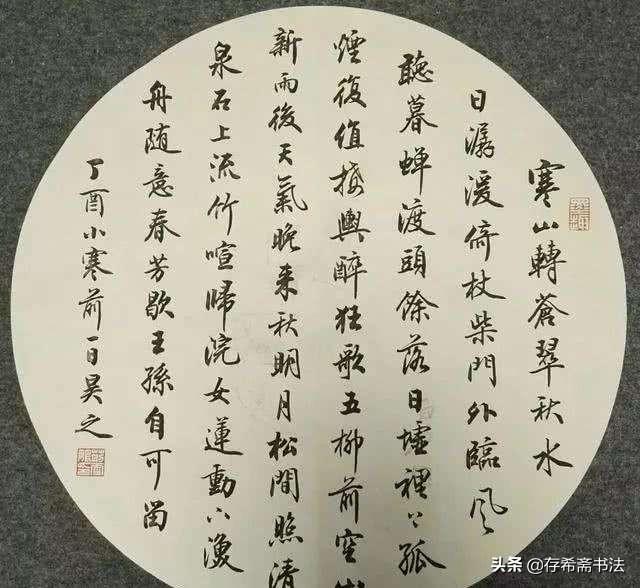 寒山轉蒼翠秋水
日潺湲倚杖柴門外臨風
聽暮蟬渡頭餘落日墟裡上孤
煙復值接輿醉狂歌五柳前空山
新雨後天氣晚来秋明月松間照清
泉石上流竹喧歸浣女蓮動下漁
舟随意春芳歇王孫自可留
丁酉小寒前一日昊之
头条 @存希斋书法